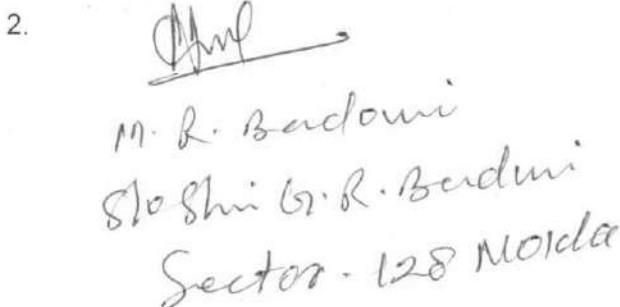 2.
M. R. Badoni
S/o Shri G. R. Badoni
Sector - 128 Noida